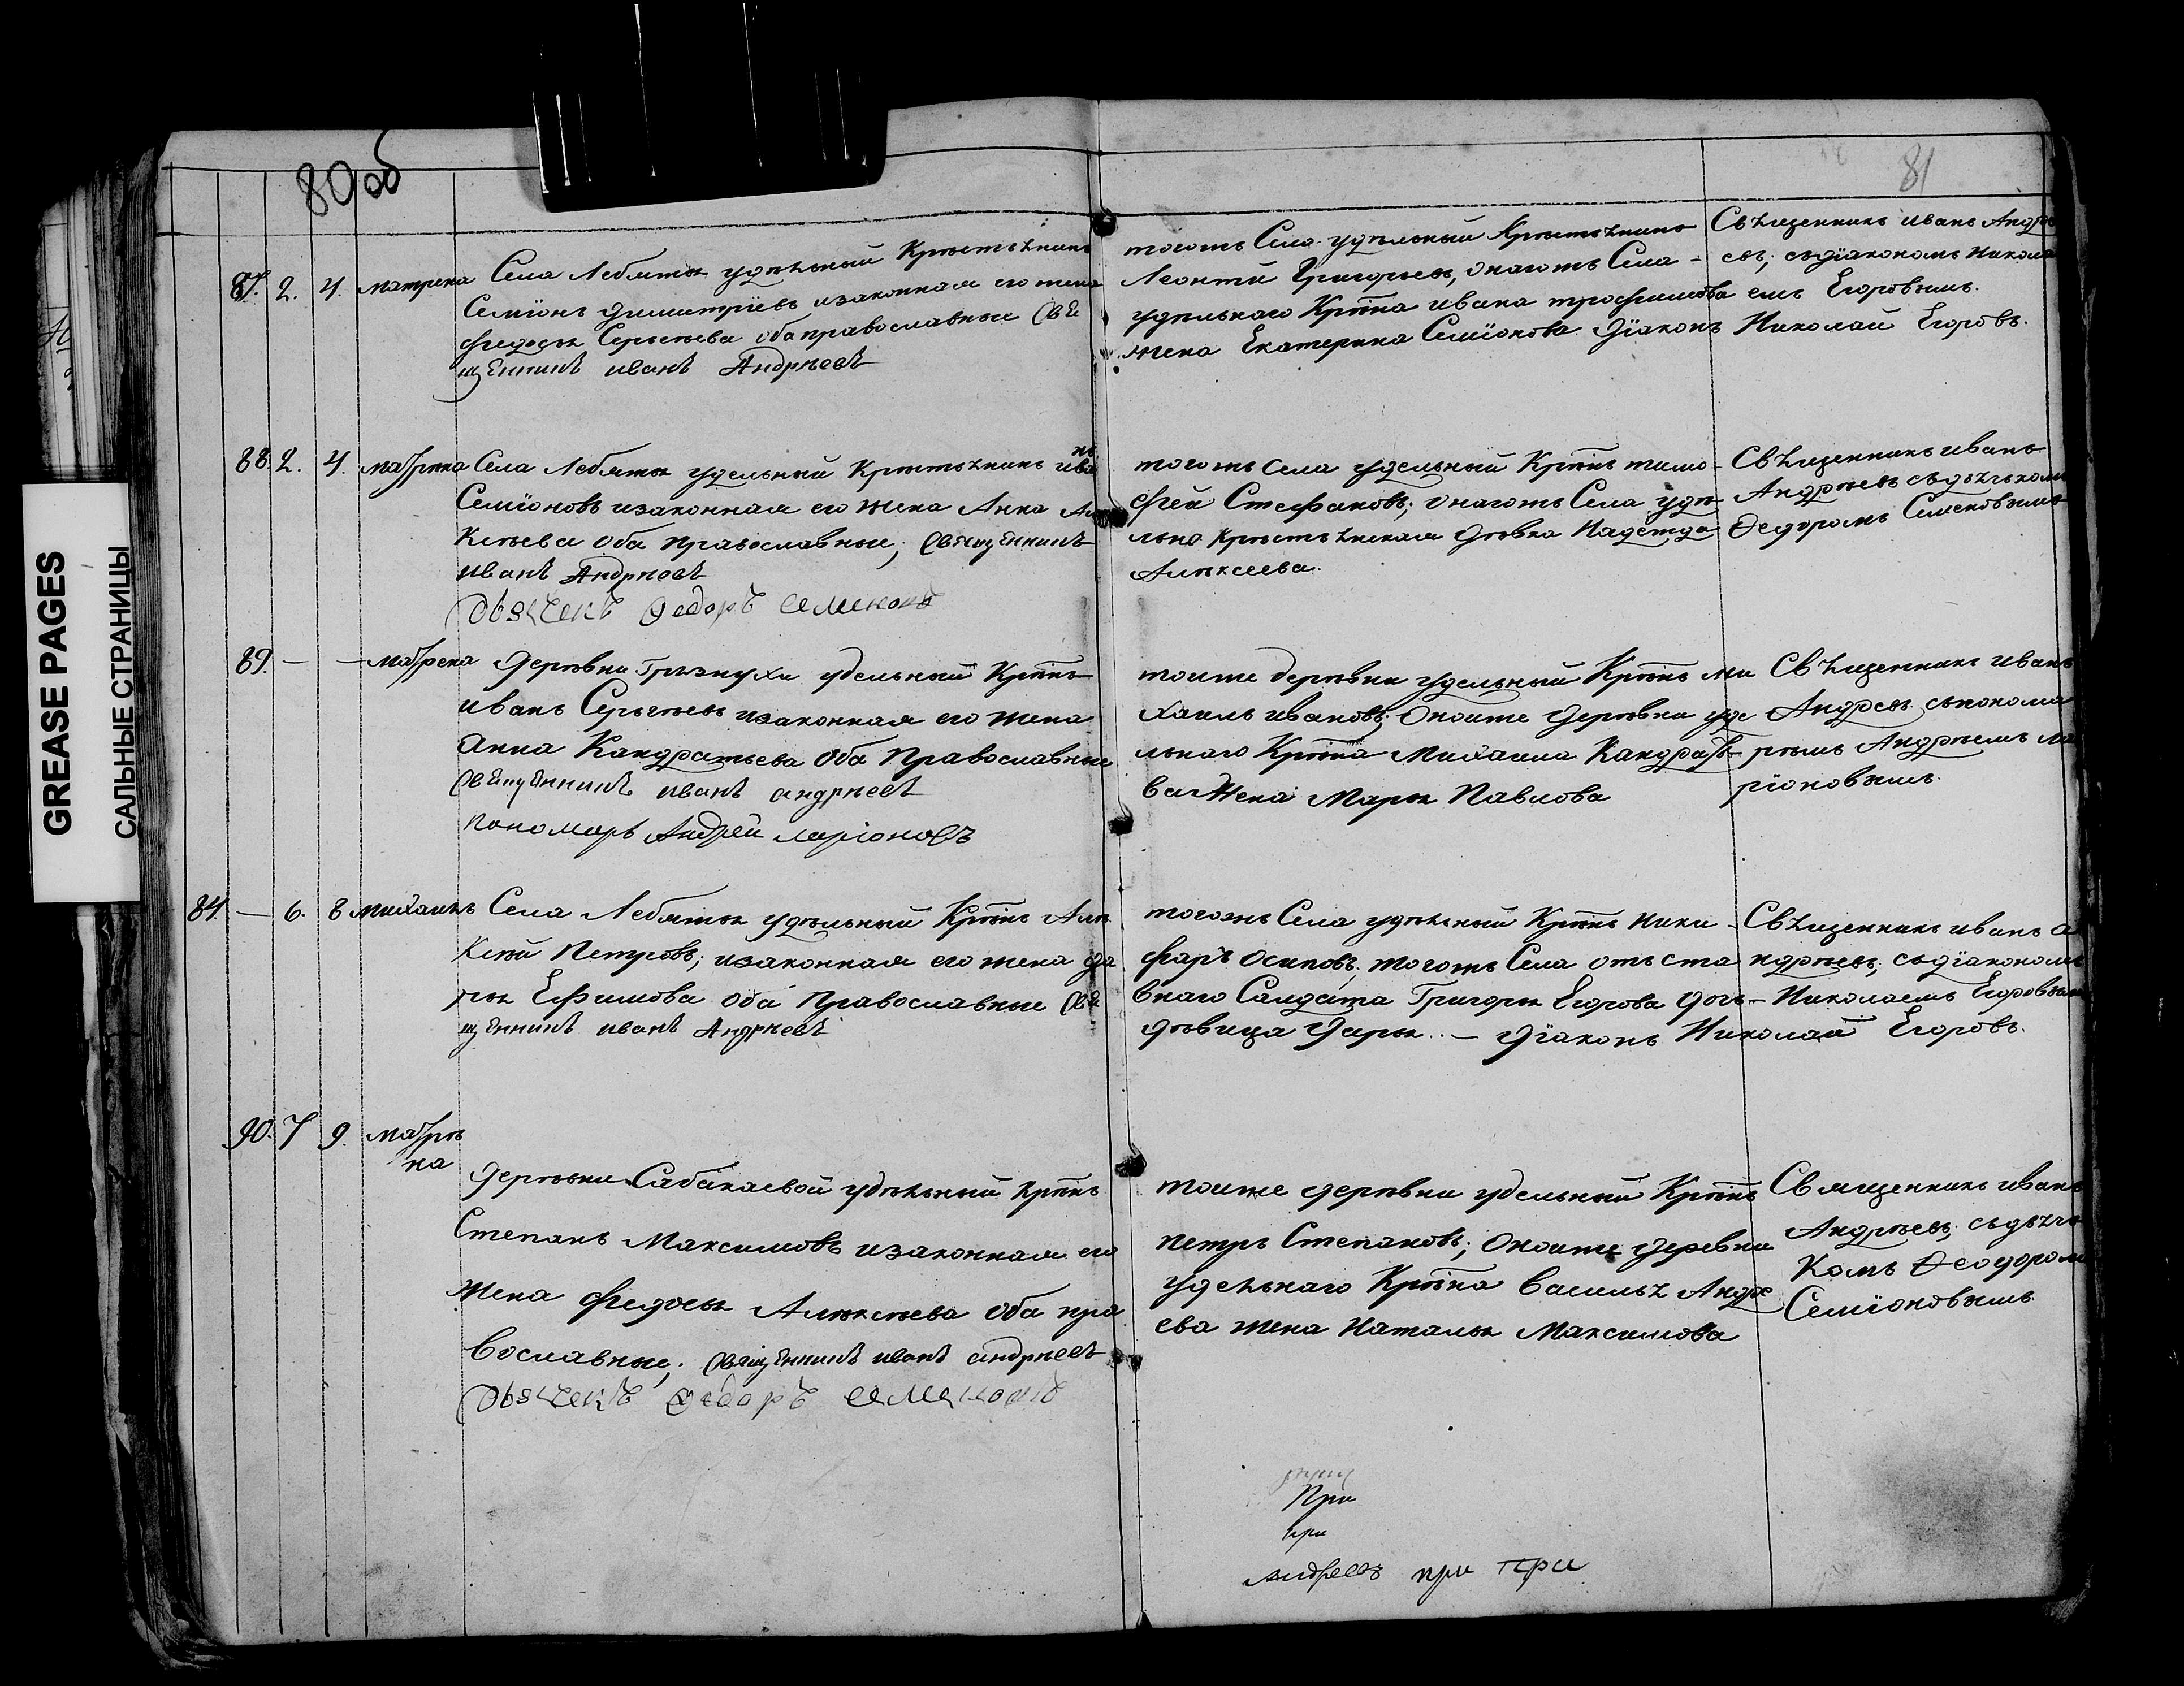 80 об
81
87. 2. 4. матрена Села Лебяжья удѣльный Крѣстьянинъ
Семіонъ димитріевъ изаконная его жена
федосья Сергѣева оба православные Свя
щенникъ иванъ Андрѣевъ
тогожъ Села удѣльный Крѣстьянинъ
Леонтій Григорьевъ, Онагожъ Села
удѣльнаго Крѣнa ивана трофимова
жена Екатерина Семіонова Діаконъ Николай Егоровъ.
Свѣщенникъ иванъ Андрѣ
евъ, съдіакономъ Никола
емъ Егоровымъ.
88. 2. 4. матрена Села Лебяжья удельный Крѣстьянинъ ива
нъ
Семіоновъ изаконная его жена Анна Але
Ксѣева оба православные, Священникъ
иванъ Андрѣевъ
Дьячекъ Федоръ Семеновъ
тогожъ села удельный Крѣнъ тимо-
фей Стефановъ, Онагожъ Села удѣ
льна Крѣстьянская Дѣвка Надежда
Алѣксеева.
Свѣщенникъ иванъ
Андрѣевъ съдьячькомъ
Ѳедоромъ Семеновымъ
89. — — матрена Дерѣвни Грязнухи удельный Крѣнъ
иванъ Сергѣевъ изаконная его жена
анна Кандратьева оба Православные
Священникъ иванъ андрѣевъ
пономарь Андрей ларіоновъ
тоиже дерѣвни удельный Крѣнъ ми
хаилъ ивановъ, Оноиже Дерѣвни уде
льнаго Крѣна Михаила Кандратье-
ва Жена Марья Павлова
Свѣщенникъ иванъ
Андреевъ съпонома
ремъ Андрѣемъ ла
ріоновымъ.
84. — 6. 8 михаилъ Села Лебяжья удѣльный Крѣнъ Алѣ
Ксѣй Петровъ, изаконная его жена да
рья Ефимова оба Православные Свя
щенникъ иванъ Андрѣевъ
тогожъ Села удѣльный Крѣнъ ники-
фаръ осиповъ, тогожъ Села отъста
внаго Салдата Григорья Егорова дочь-
дѣвица Дарья.. — Діаконъ Николай Егоровъ.
Свѣщенникъ иванъ а
ндрѣевъ, съдіакономъ
Николаемъ Егоровымъ
90. 7 9. матрѣ
на
Дерѣвни Сабакаевой удѣльный Крѣнъ
Степанъ Максимовъ изаконная его
жена федосья Алѣксѣева оба пра
вославные, священникъ иванъ андрѣевъ
Дьячекъ Федоръ Семеновъ
тоиже дерѣвни удельный Крѣнъ
петръ Степановъ, Оноиже деревни
удельнаго Крѣна василья Андре
ева жена Наталья Максимова
Священникъ иванъ
Андрѣевъ, съдьячь
Комъ Ѳеодоромъ
Семіоновымъ.
При
при
Андреевъ при при
GREASE PAGES
САЛЬНЫЕ СТРАНИЦЫ